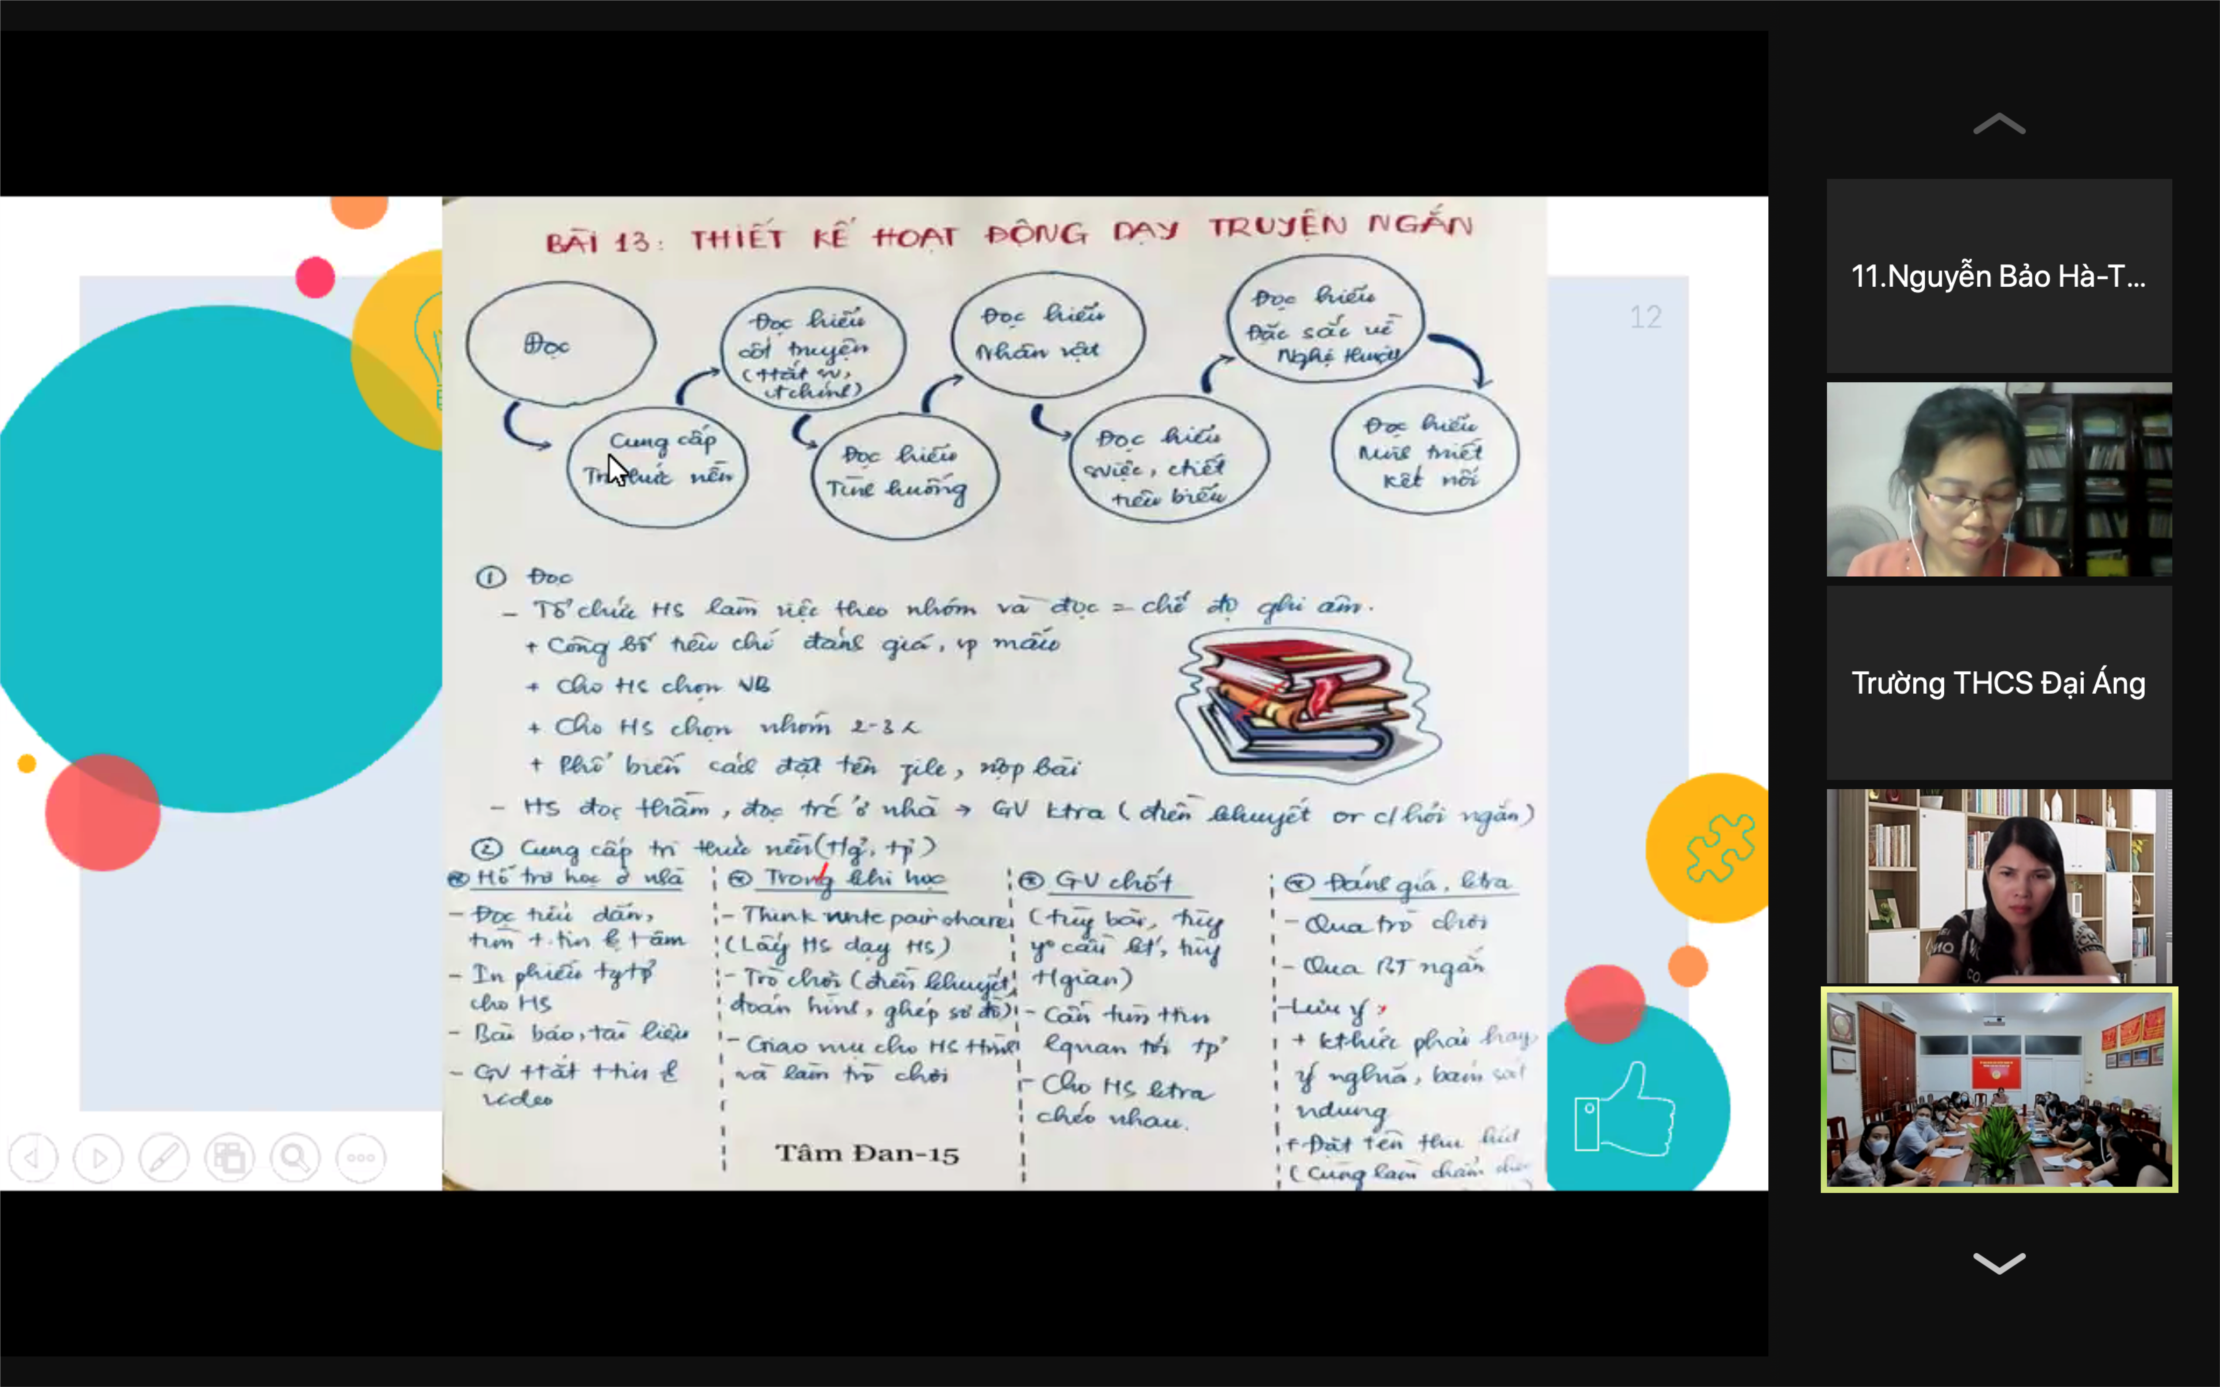 BÀI 13: THIẾT KẾ HOẠT ĐỘNG DẠY TRUYỆN NGẮN
12
Đọc
Cung cấp
Tri thức nền
Đọc hiểu
cốt truyện
(ttắt sv,
ct chính)
Đọc hiểu
Tình huống
Đọc hiểu
Nhân vật
Đọc hiểu
sviệc, chiết
tiêu biểu
Đọc hiểu
Đặc sắc về
Nghệ thuật
Đọc hiểu
kết nối
① Đọc
- Tổ chức HS làm việc theo nhóm và đọc = chế độ ghi âm.
+ Công bố tiêu chí đánh giá, sp mẫu
+ Cho HS chọn VB
+ Cho HS chọn nhóm 2-3
+ Phổ biến cách đặt tên file, nộp bài
- HS đọc thầm, đọc trc ở nhà → GV ktra (điền khuyết or c/hỏi ngắn)
② Cung cấp tri thức nền (tg, tp)
Hỗ trợ học ở nhà
- Đọc tiểu dẫn,
tìm t.tin tâm
- In phiếu tgtp
cho HS
- Bài báo, tài liệu
- GV ttắt ttin
video
Trong khi học
- Think write pair share
(Lấy HS dạy HS)
- Trò chơi (điền khuyết,
đoán hình, ghép sơ đồ)
- Giao nvụ cho HS
và làm trò chơi
GV chốt
(tùy bài, tùy
y/cầu kt, tùy
tgian)
- Cần tìm ttin
lquan tới tp
- Cho HS ktra
chéo nhau.
Đánh giá, ktra
- Qua trò chơi
- Qua BT ngắn
- Lưu ý
+ kthức phải hay,
ý nghĩa, bám sát
ndung
+ Đặt tên thu hút
(Cùng làm
Tâm Đan-15
11.Nguyễn Bảo Hà-T...
Trường THCS Đại Áng